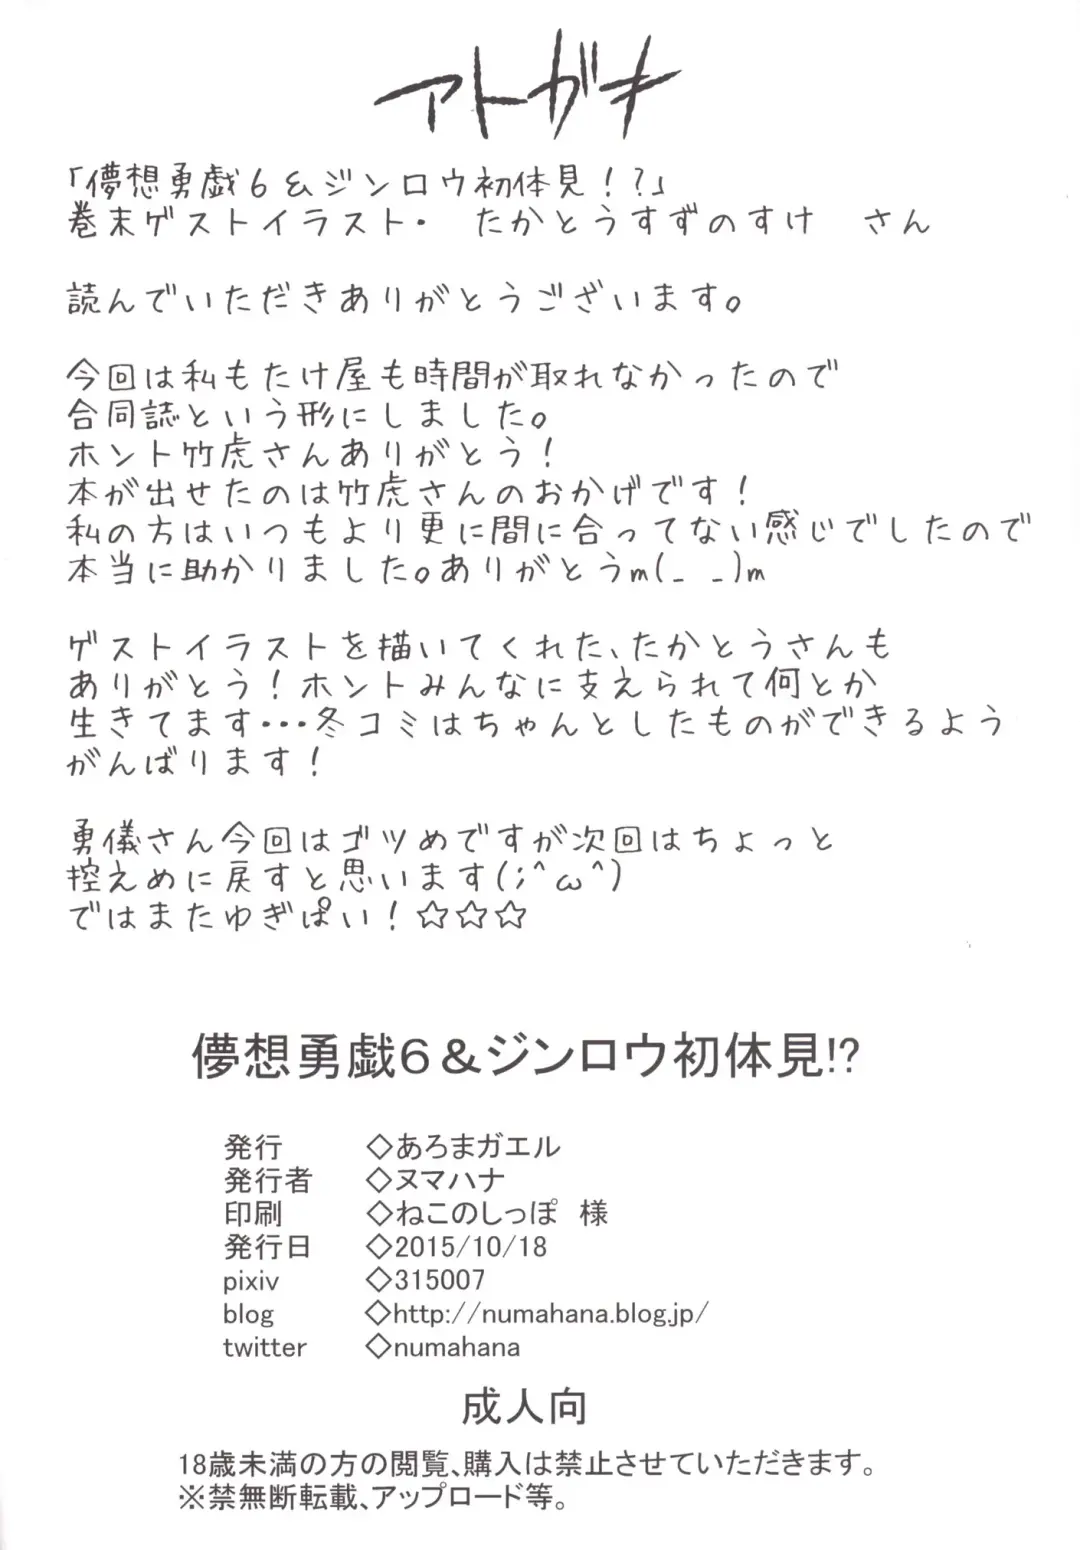 アトガキ
「儚想勇戯6&ジンロウ初体見！？」
巻末ゲストイラスト・　たかとうすずのすけ　さん
読んでいただきありがとうございます。
今回は私もたけ屋も時間が取れなかったので
合同誌という形にしました。
ホント竹虎さんありがとう！
本が出せたのは竹虎さんのおかげです！
私の方はいつもより更に間に合ってない感じでしたので
本当に助かりました。ありがとうm(_ _)m
ゲストイラストを描いてくれた、たかとうさんも
ありがとう！ホントみんなに支えられて何とか
生きてます・・・冬コミはちゃんとしたものができるよう
がんばります！
勇儀さん今回はゴツめですが次回はちょっと
控えめに戻すと思います(;^ω^)
ではまたゆぎぱい！☆☆☆
儚想勇戯６＆ジンロウ初体見!?
発行　◇あろまガエル
発行者　◇ヌマハナ
印刷　◇ねこのしっぽ　様
発行日　◇2015/10/18
pixiv　◇315007
blog　◇http://numahana.blog.jp/
twitter　◇numahana
成人向
18歳未満の方の閲覧、購入は禁止させていただきます。
※禁無断転載、アップロード等。